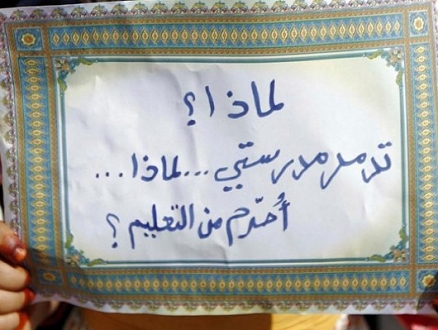 لماذا؟
تدمر مدرستي...لماذا...
أُحرم من التعليم؟